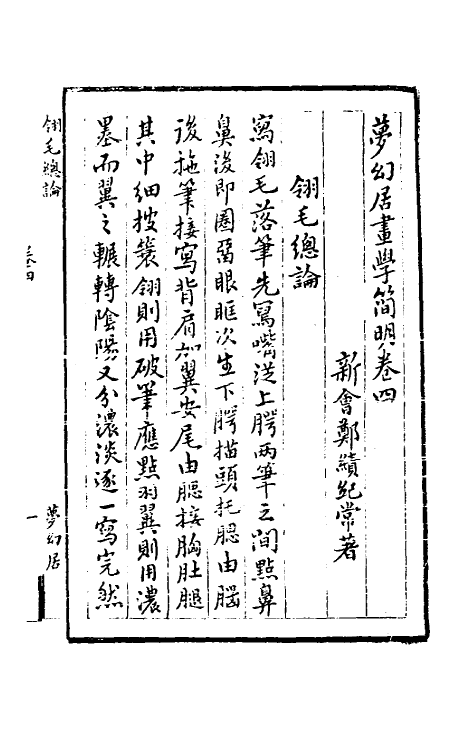 夢幻居畫學簡明卷四
新會鄭績紀常著
翎毛總論
寫翎毛落筆先寫嘴從上腭兩筆之間點鼻
鼻後即圈酌眼眶次生下腭描頭托腮由腦
後拖筆接寫背肩加翼安尾由腮接胸肚腿
其中細披簑翎則用破筆應點羽翼則用濃
墨而翼之輾轉陰陽又分濃淡逐一寫完然
翎毛總論
卷四
一
夢幻居